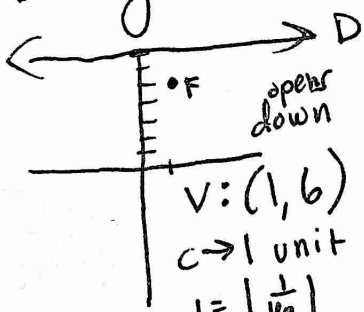 D
F
opens
down
V: (1, 6)
c → 1 unit